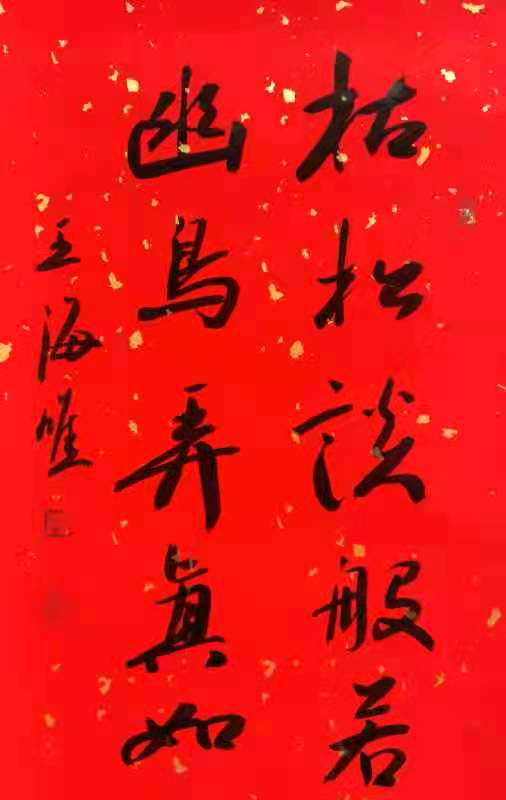 枯松談般若
幽鳥弄真如
王海唯